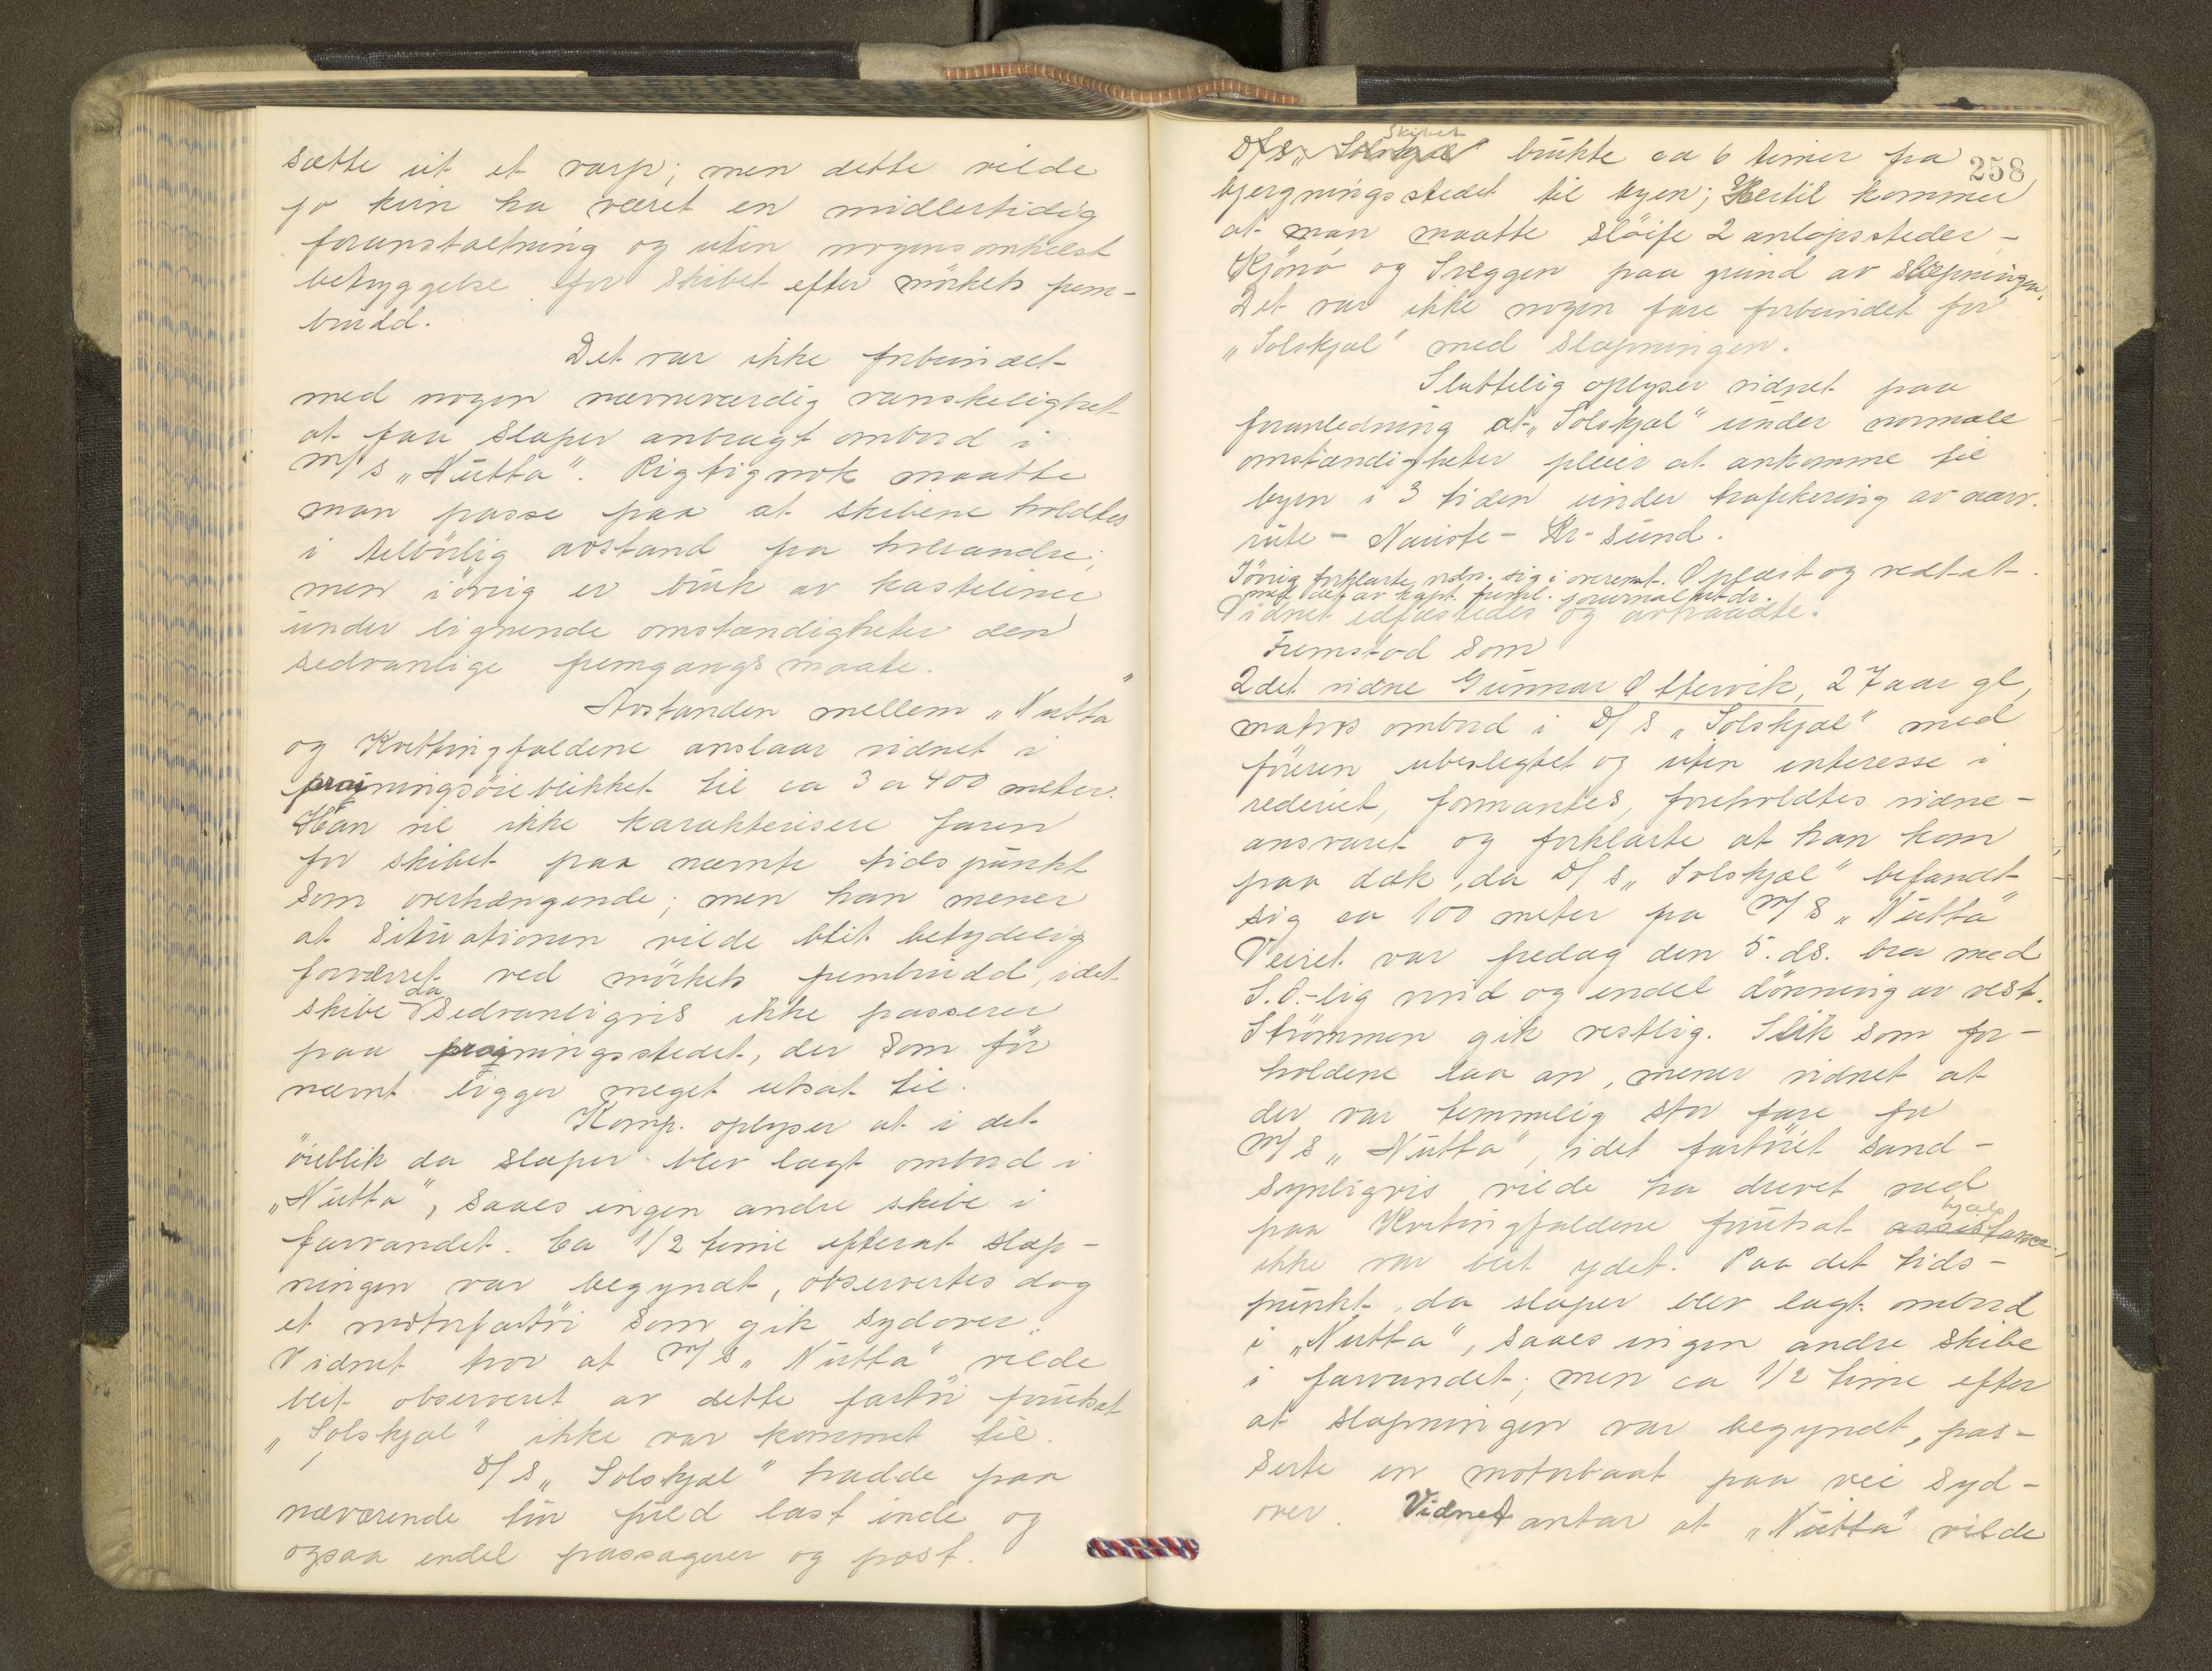 sætte ut et varp; men dette vilde
jo kun ha været en midlertidig
foranstaltning og uten nogensomhelst
betryggelse for skibet efter mörkets frem-
brudd.
Det var ikke forbundet
med nogen nævneværdig vanskelighet
at faa slæper anbragt ombord i
M/S „Nutta". Rigtignok maatte
man passe paa at skibene holdtes
i tilbörlig avstand fra hverandre;
men iövrig er bruk av kasteline
under lignende omstændigheter den
sedvanlige fremgangsmaate.
Avstanden mellem „Nutta"
og Kvitingfaldene anslaar vidnet i
prainingsöieblikket til ca 3 a 400 meter.
Han vil ikke karakterisere faren
for skibet paa nævnte tidspunkt
som overhængende; men han mener
at situationen vilde blit betydelig
forværret ved mörkets frembrudd, idet
skibe da sedvanligvis ikke passerer
paa prainingsstedet, der som för
nævnt ligger meget utsat til.
Komp. oplyser at i det
öieblik da slæper blev lagt ombord i
„Nutta", saaes ingen andre skibe i
farvandet. Ca 1/2 time efterat slæp-
ningen var begyndt, observertes dog
et motorfartöi som gik sydover.
Vidnet tror at M/S „Nutta" vilde
blit observeret av dette fartöi forutsat
„Solskjæl" ikke var kommet til.
D/S „Solskjæl" hadde paa
næværende tur fuld last inde og
ogsaa endel passagerer og post.
258
Skibet
D/S „Solskjæl" brukte ca 6 timer fra
bjergningsstedet til byen; Hertil kommer
at man maatte slöife 2 anlöpssteder -
Kjönö og Sveggen paa grund av slæpningen.
Det var ikke nogen fare forbundet for
„Solskjæl" med slæpningen.
Sluttelig oplyser vidnet paa
foranledning at „Solskjæl" under normale
omstændigheter pleier at ankomme til
byen i 3 tiden under trafikering av nærv.
rute - Nauste - Kr-sund.
Iövrig forklarte vidn. sig i overenst. Oplæst og vedtat.
med det av kapt. freml. journalutdr.
Vidnet edfæstedes og avtraadte.
Fremstod som
2det vidne Gunnar Ottervik, 27 aar gl,
matros ombord i D/S „Solskjæl" med
föreren ubeslegtet og uten interesse i
rederiet, formantes, foreholdtes vidne-
ansvaret og forklarte at han kom
paa dæk, da D/S „Solskjæl" befandt
sig ca 100 meter fra M/S „Nutta"
Veiret var fredag den 5. ds. bra med
S.O.-lig vind og endel dönning av vest.
Strömmen gik vestlig. Slik som for-
holdene laa an, mener vidnet at
der var temmelig stor fare for
M/S „Nutta", idet fartöiet sand-
synligvis vilde ha drevet ned
hjælp
paa Kvitingfaldene forutsat assistance
ikke var blit ydet. Paa det tids-
punkt, da slæper blev lagt ombord
i „Nutta", saaes ingen andre skibe
i farvandet; men ca 1/2 time efter
at slæpningen var begyndt, pas-
serte en motorbaat paa vei syd-
over. Vidnet antar at „Nutta" vilde